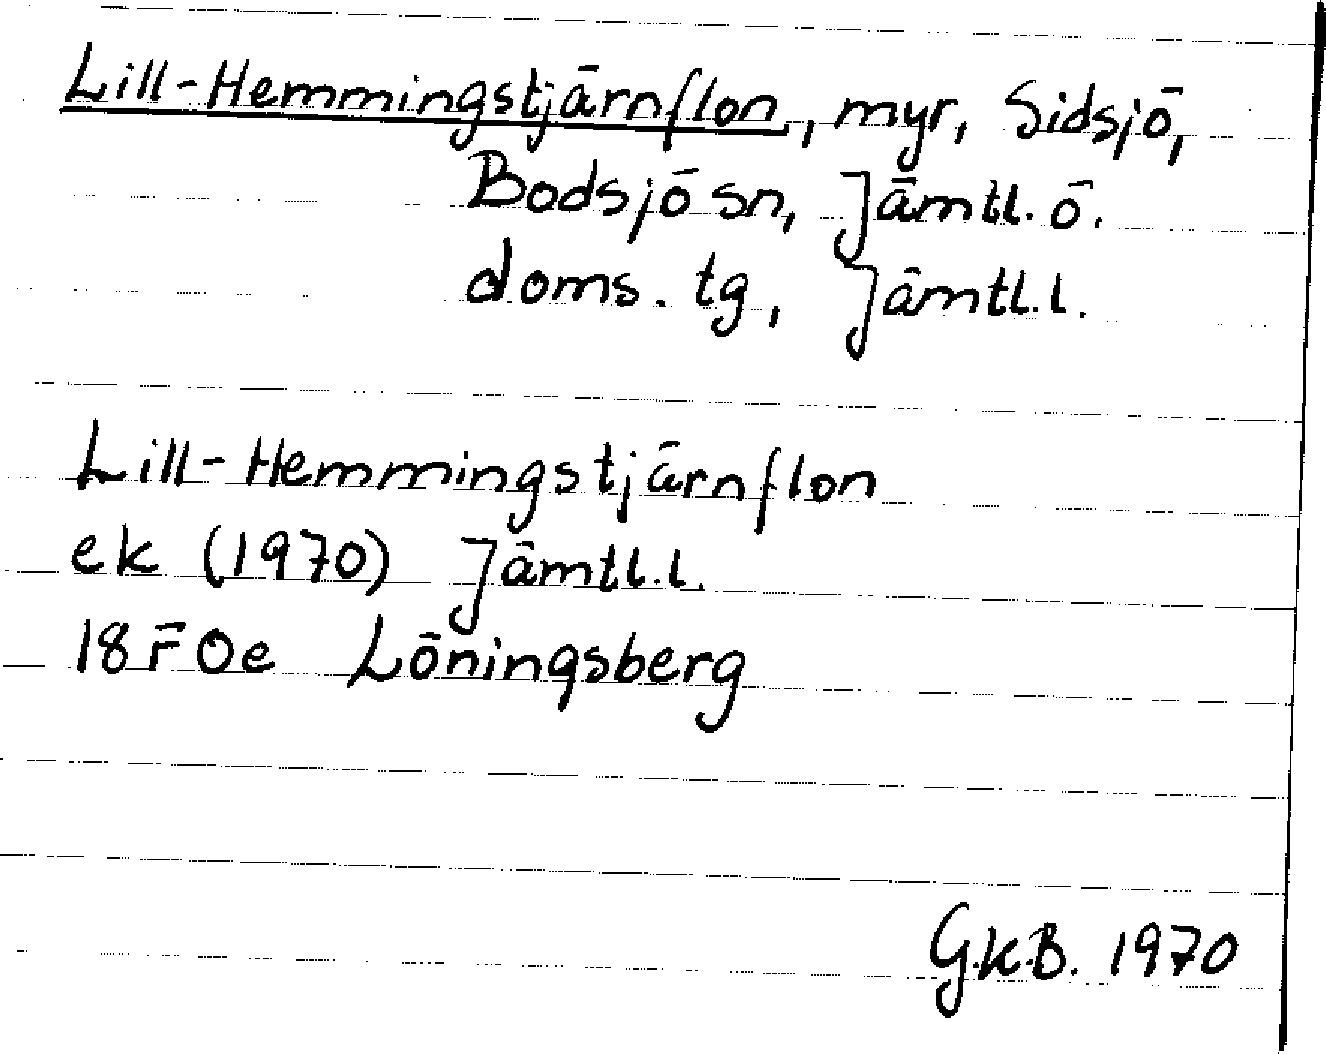 Lill-Hemmingstjärnflon, myr, Sidsjö,
Bodsjö sn, Jämtl. ö.
doms. tg, Jämtl. l.
Lill-Hemmingstjärnflon
ek (1970) Jämtl. l.
18F 0e Löningsberg
G.K.B. 1970